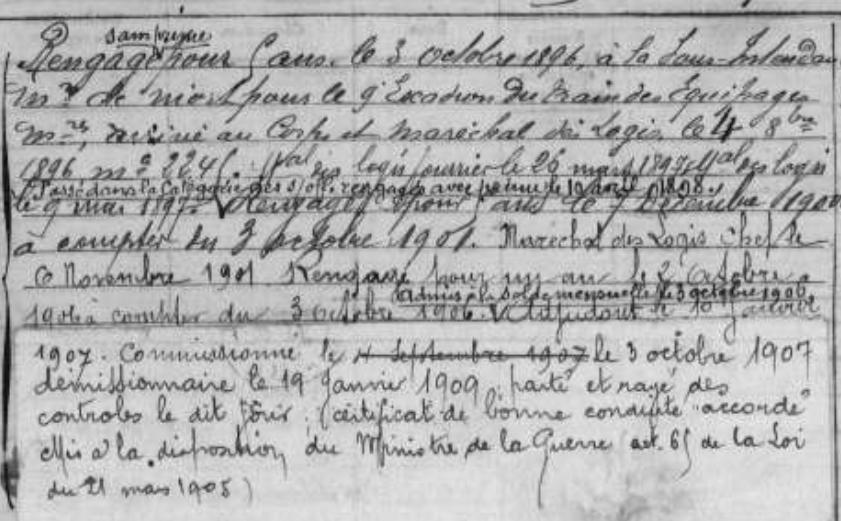 sans prime
Rengagé pour 5 ans le 3 octobre 1896, à la Sous-Intendance
m.re de Niort pour le 9e Escadron du train des Équipages
m.res, arrivé au Corps et Maréchal des Logis le 4 8bre
1896, mle 2245. Mal des logis fourrier le 26 mars 1897 Mal des logis
Passé dans la Catégorie des s/off. rengagés avec prime le 19 avril 1898.
le 9 mai 1897. Rengagé pour ans le 7 Décembre 1900
à compter du 3 octobre 1901. Maréchal des Logis Chef le
6 Novembre 1901 Rengagé pour un an le 2 Octobre
Admis à la solde mensuelle le 3 octobre 1906
1906 à compter du 3 Octobre 1906. Adjudant le 10 Janvier
1907. Commissionné le 4 Septembre 1907 le 3 octobre 1907
démissionnaire le 19 Janvier 1909, parti et rayé des
controles le dit jour. (certificat de bonne conduite accordé
Mis à la disposition du Ministre de la Guerre art. 65 de la Loi
du 21 mars 1905)